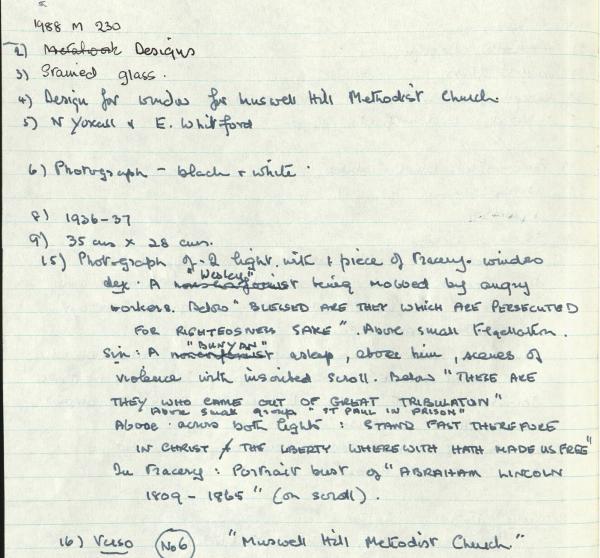 1988 M 230
2) Notebook Designs
3) Stained glass.
4) Design for window for Muswell Hill Methodist Church.
5) N Yoxall & E. Whitford
6) Photograph - black & white.
8) 1936-37
9) 35 cms x 28 cms.
15) Photograph of 2 light, with 1 piece of tracery. window
dex: A nonconformist "Wesley" being mobbed by angry
workers. Below "BLESSED ARE THEY WHICH ARE PERSECUTED
FOR RIGHTEOSNESS SAKE". Above small Flagellation.
Sin: A nonconformist "BUNYAN" asleep, above him, scenes of
violence with inscribed scroll. Below "THESE ARE
THEY WHO CAME OUT OF GREAT TRIBULATON"
Above small group "ST PAUL IN PRISON"
Above across both lights: STAND FAST THEREFORE
IN CHRIST THE LIBERTY WHEREWITH HATH MADE US FREE"
In tracery: Portrait bust of "ABRAHAM LINCOLN
1809 - 1865" (on scroll).
16) Verso No 6 "Muswell Hill Methodist Church"